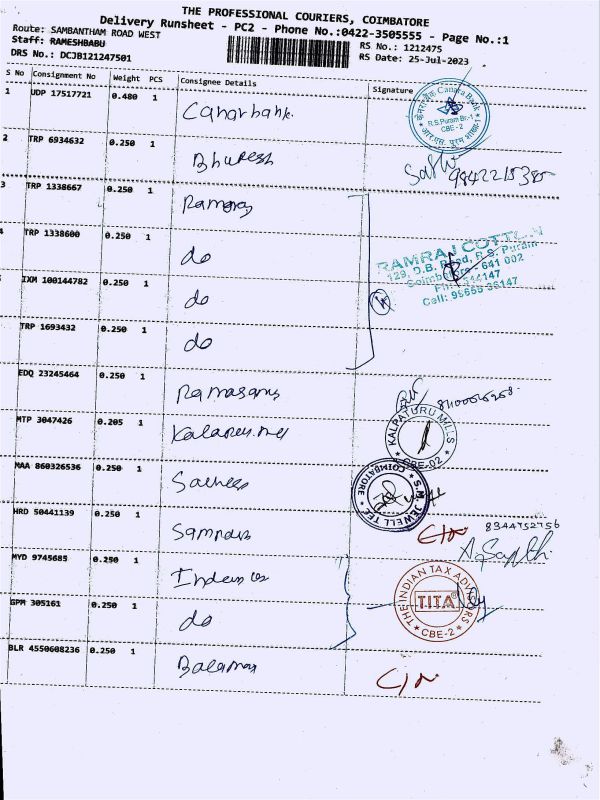 THE PROFESSIONAL COURIERS, COIMBATORE
Delivery Runsheet - PC2 - Phone No.:0422-3505555 - Page No.:1
Route: SAMBANTHAM ROAD WEST
Staff: RAMESHBABU
DRS No.: DCJB121247501
RS No.: 1212475
RS Date: 25-Jul-2023
S No Consignment No Weight PCS Consignee Details Signature
1 UDP 17517721 0.480 1 Canarbank.
केनरा बैंक Canara Bank
R.S.Puram Br.-1
CBE - 2
2 TRP 6934632 0.250 1 Bhupesh
9842215385
3 TRP 1338667 0.250 1 Ramraj
4 TRP 1338600 0.250 1 do
RAMRAJ COTTON
129, D.B. Road, R.S. Puram
Coimbatore - 641 002
Cell: 95655 36147
IXM 100144782 0.250 1 do
4
TRP 1693432 0.250 1 do
EDQ 23245464 0.250 1 Ramasamy
MTP 3047426 0.205 1
KALPATURU MILLS
CBE-02
MAA 860326536 0.250 1 Sathees
S.M. JEWELL TEE
COIMBATORE
HRD 50441139 0.250 1
8344752756
MYD 9745685 0.250 1
GPM 305161 0.250 1 do
THE INDIAN TAX ADVISORS
TITA
CBE-2
BLR 4550608236 0.250 1